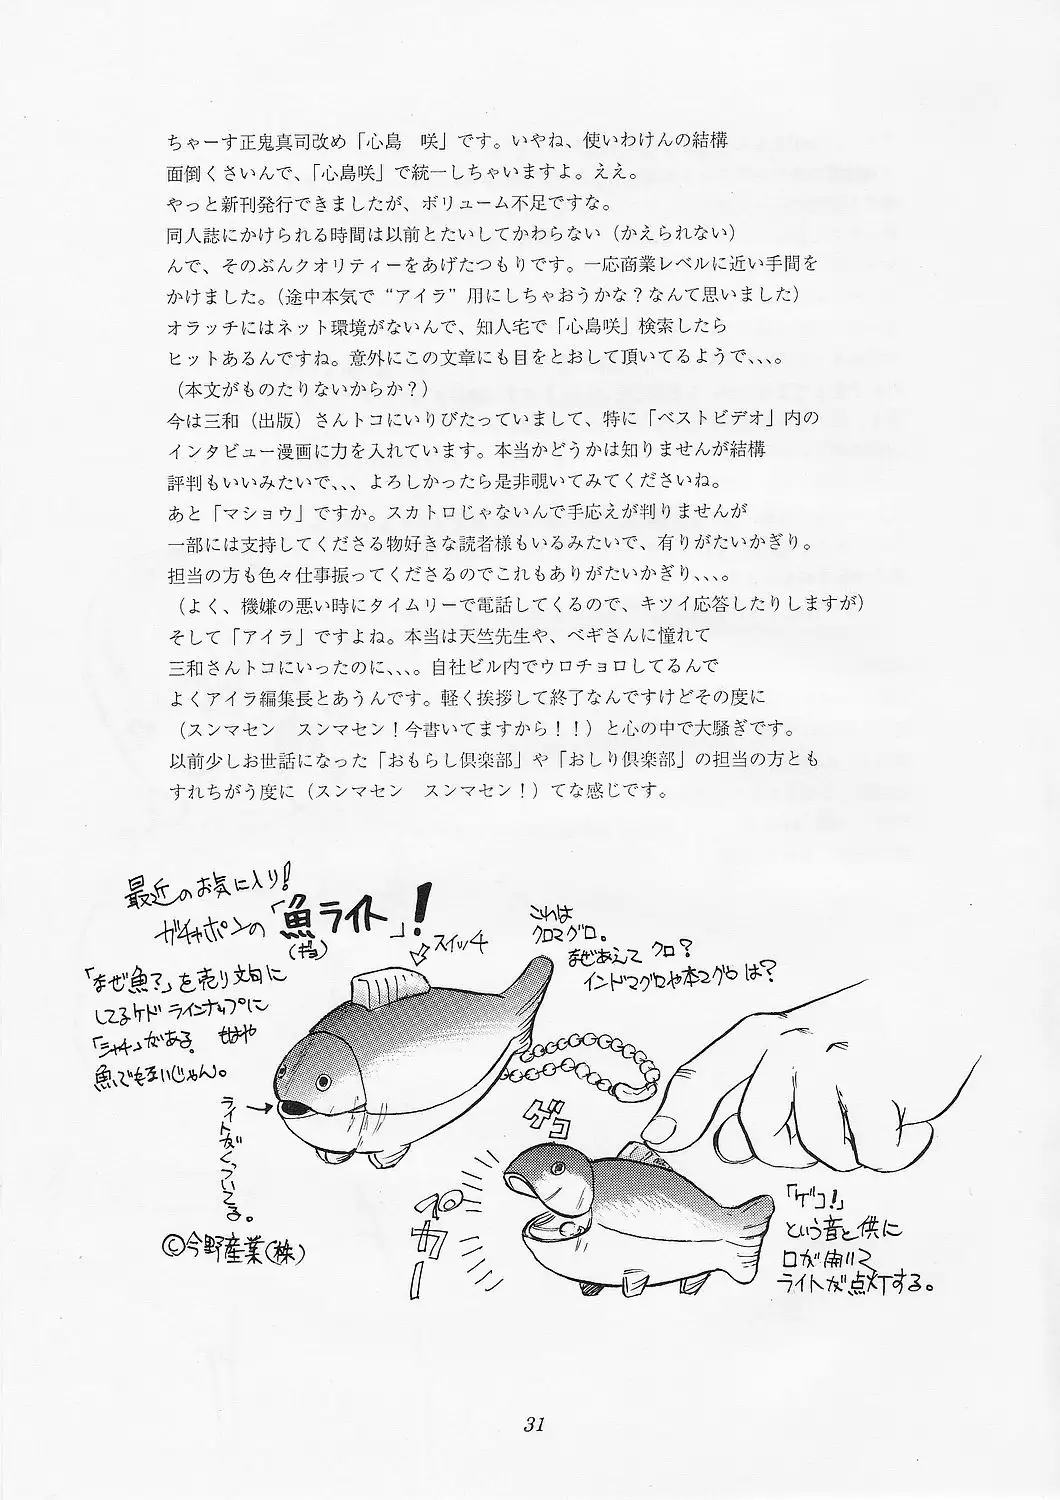 ちゃーす正鬼真司改め「心島　咲」です。いやね、使いわけんの結構
面倒くさいんで、「心島咲」で統一しちゃいますよ。ええ。
やっと新刊発行できましたが、ボリューム不足ですな。
同人誌にかけられる時間は以前とたいしてかわらない（かえられない）
んで、そのぶんクオリティーをあげたつもりです。一応商業レベルに近い手間を
かけました。（途中本気で“アイラ”用にしちゃおうかな？なんて思いました）
オラッチにはネット環境がないんで、知人宅で「心島咲」検索したら
ヒットあるんですね。意外にこの文章にも目をとおして頂いてるようで、、、。
（本文がものたりないからか？）
今は三和（出版）さんトコにいりびたっていまして、特に「ベストビデオ」内の
インタビュー漫画に力を入れています。本当かどうかは知りませんが結構
評判もいいみたいで、、、よろしかったら是非覗いてみてくださいね。
あと「マショウ」ですか。スカトロじゃないんで手応えが判りませんが
一部には支持してくださる物好きな読者様もいるみたいで、有りがたいかぎり。
担当の方も色々仕事振ってくださるのでこれもありがたいかぎり、、、。
（よく、機嫌の悪い時にタイムリーで電話してくるので、キツイ応答したりしますが）
そして「アイラ」ですよね。本当は天竺先生や、ベギさんに憧れて
三和さんトコにいったのに、、、。自社ビル内でウロチョロしてるんで
よくアイラ編集長とあうんです。軽く挨拶して終了なんですけどその度に
（スンマセン　スンマセン！今書いてますから！！）と心の中で大騒ぎです。
以前少しお世話になった「おもらし倶楽部」や「おしり倶楽部」の担当の方とも
すれちがう度に（スンマセン　スンマセン！）てな感じです。
最近のお気に入り！
ガチャポンの「魚ライト」！
（ギョ）
スイッチ
これは
クロマグロ。
なぜあえて クロ？
インドマグロや本マグロは？
「なぜ魚？」を売り文句に
してるケド ラインナップに
「シャチ」がある。 もはや
魚でもないじゃん。
ライトがくっついてる。
©今野産業（株）
ゲコ
ペカー
「ゲコ！」
という音と供に
口が開いて
ライトが点灯する。
31